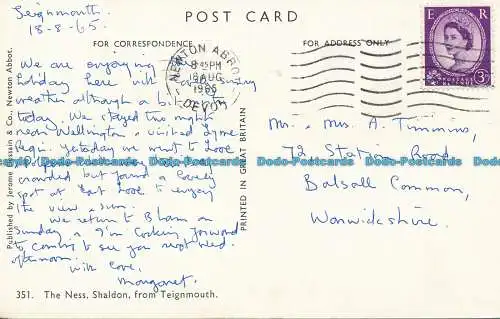 Teignmouth.
18-8-65.
POST CARD
FOR CORRESPONDENCE
FOR ADDRESS ONLY
E R
POSTAGE REVENUE
3D
NEWTON ABBOT
8 45 PM
18 AUG
1965
DEVON
We are enjoying our
holiday here with a sunny
weather although a bit
today. We stayed two nights
near Wellington & visited Lyme
Regis. Yesterday we went to Looe
crowded but found a lovely
spot at East Looe to enjoy
the view & sun.
We return to B'ham on
Sunday & I'm looking forward
to coming to see you next Wed.
afternoon.
with love,
Margaret.
Mr. & Mrs. A. Timmins,
72 Station Road,
Balsall Common,
Warwickshire.
Published by Jerome Dessain & Co., Newton Abbot.
PRINTED IN GREAT BRITAIN
Dodo-Postcards Dodo-Postcards Dodo-Postcards Dodo-Postcards Dodo-Postcards
351. The Ness, Shaldon, from Teignmouth.